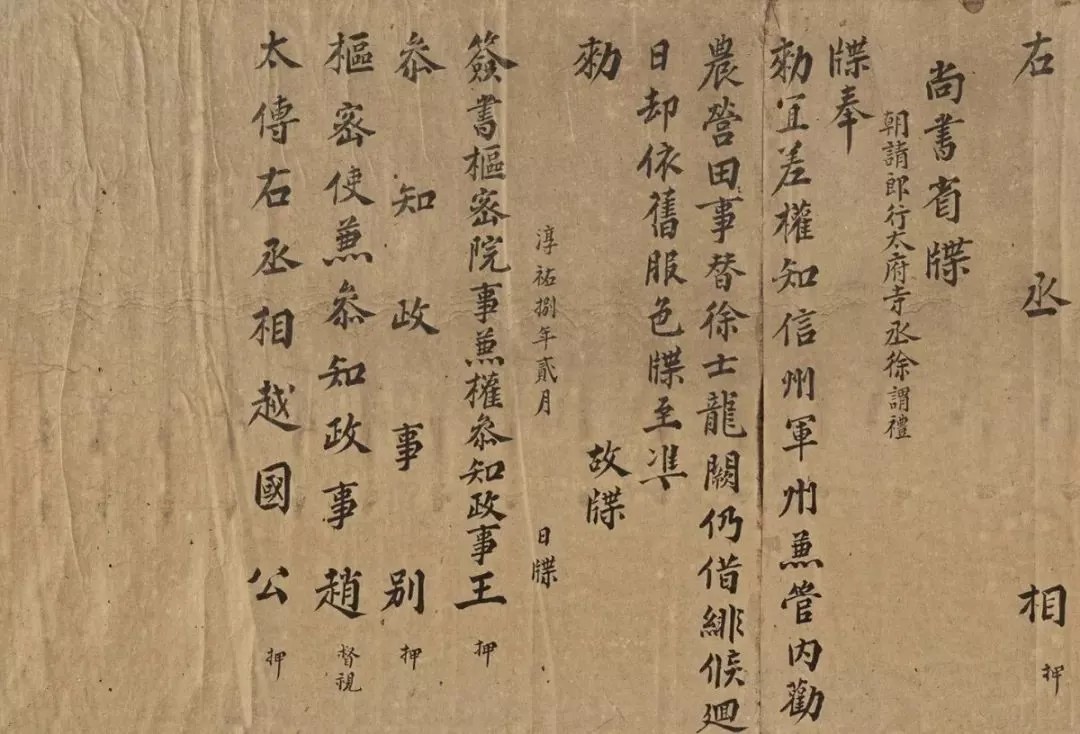 右丞相 押
尚書省牒
朝請郎行太府寺丞徐謂禮
牒奉
勑宜差權知信州軍州兼管内勸
農營田事替徐士龍闕仍借緋候廻
日却依舊服色牒至准
勑 故牒
淳祐捌年貳月 日牒
簽書樞密院事兼權叅知政事王 押
叅知政事别 押
樞密使兼叅知政事趙 督視
太傅右丞相越國公 押